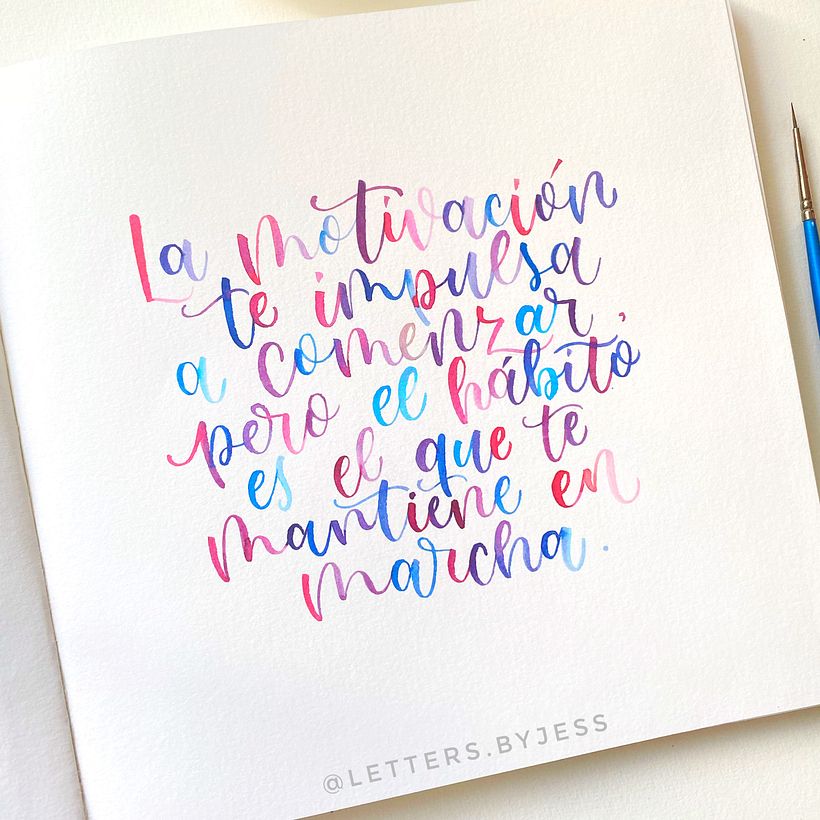 La motivación
te impulsa
a comenzar,
pero el hábito
es el que te
mantiene en
marcha.
@LETTERS.BYJESS